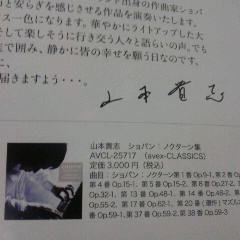 ンド出身の作曲家ショパ
と安らぎを感じさせる作品を演奏いたします。
ス一色になります。華やかにライトアップした大
そして楽しそうに行き交う人々と語らいの声。でも
で囲み、静かに皆の幸せを願う日なのです。
に
届きますよう・・・。
山本貴志
山本貴志 ショパン：ノクターン集
AVCL-25717 (avex-CLASSICS)
定価 3,000円（税込）
曲目：ショパン：ノクターン第1番 Op.9-1, 第2番 Op
第4番 Op.15-1, 第5番 Op.15-2, 第6番 Op.27-2,
Op.32-1, 第13番 Op.48-1, 第14番 Op.48-2, 第
Op.55-2, 第17番 Op.62-1, 第20番（遺作）マズル
Op.59-1, 第37番 Op.59-2, 第38番 Op.59-3